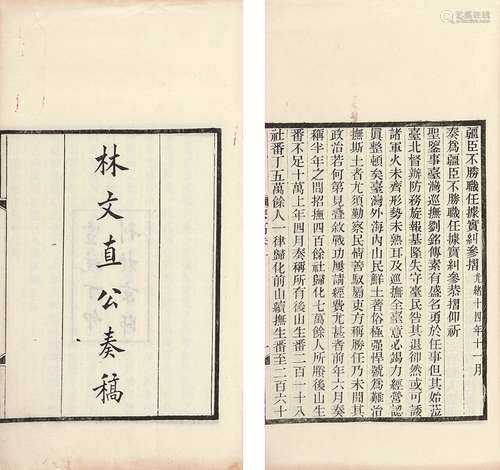 疆臣不勝職任據實糾參摺 光緒十四年十一月
奏爲疆臣不勝職任據實糾參恭摺仰祈
聖鑒事臺灣巡撫劉銘傳素有盛名勇於任事但其始蒞
臺北督辦防務旋報基隆失守臺民咎其退卻然或可諉
諸軍火未齊形勢未熟耳及巡撫全臺意必錫力經營認
眞整頓矣臺灣外海內山民鮮土著俗極强悍號爲難治
撫斯土者尤須勤察民情善馭屬吏方稱勝任乃未聞其
政治若何第見疊敘戰功屢請經費尤甚者前年六月奏
稱半年之間招撫四百餘社歸化七萬餘人所賸後山生
番不足十萬上年四月奏稱所有後山生番二百一十八
社番丁五萬餘人一律歸化前山續撫生番至二百六十
林文直公奏稿